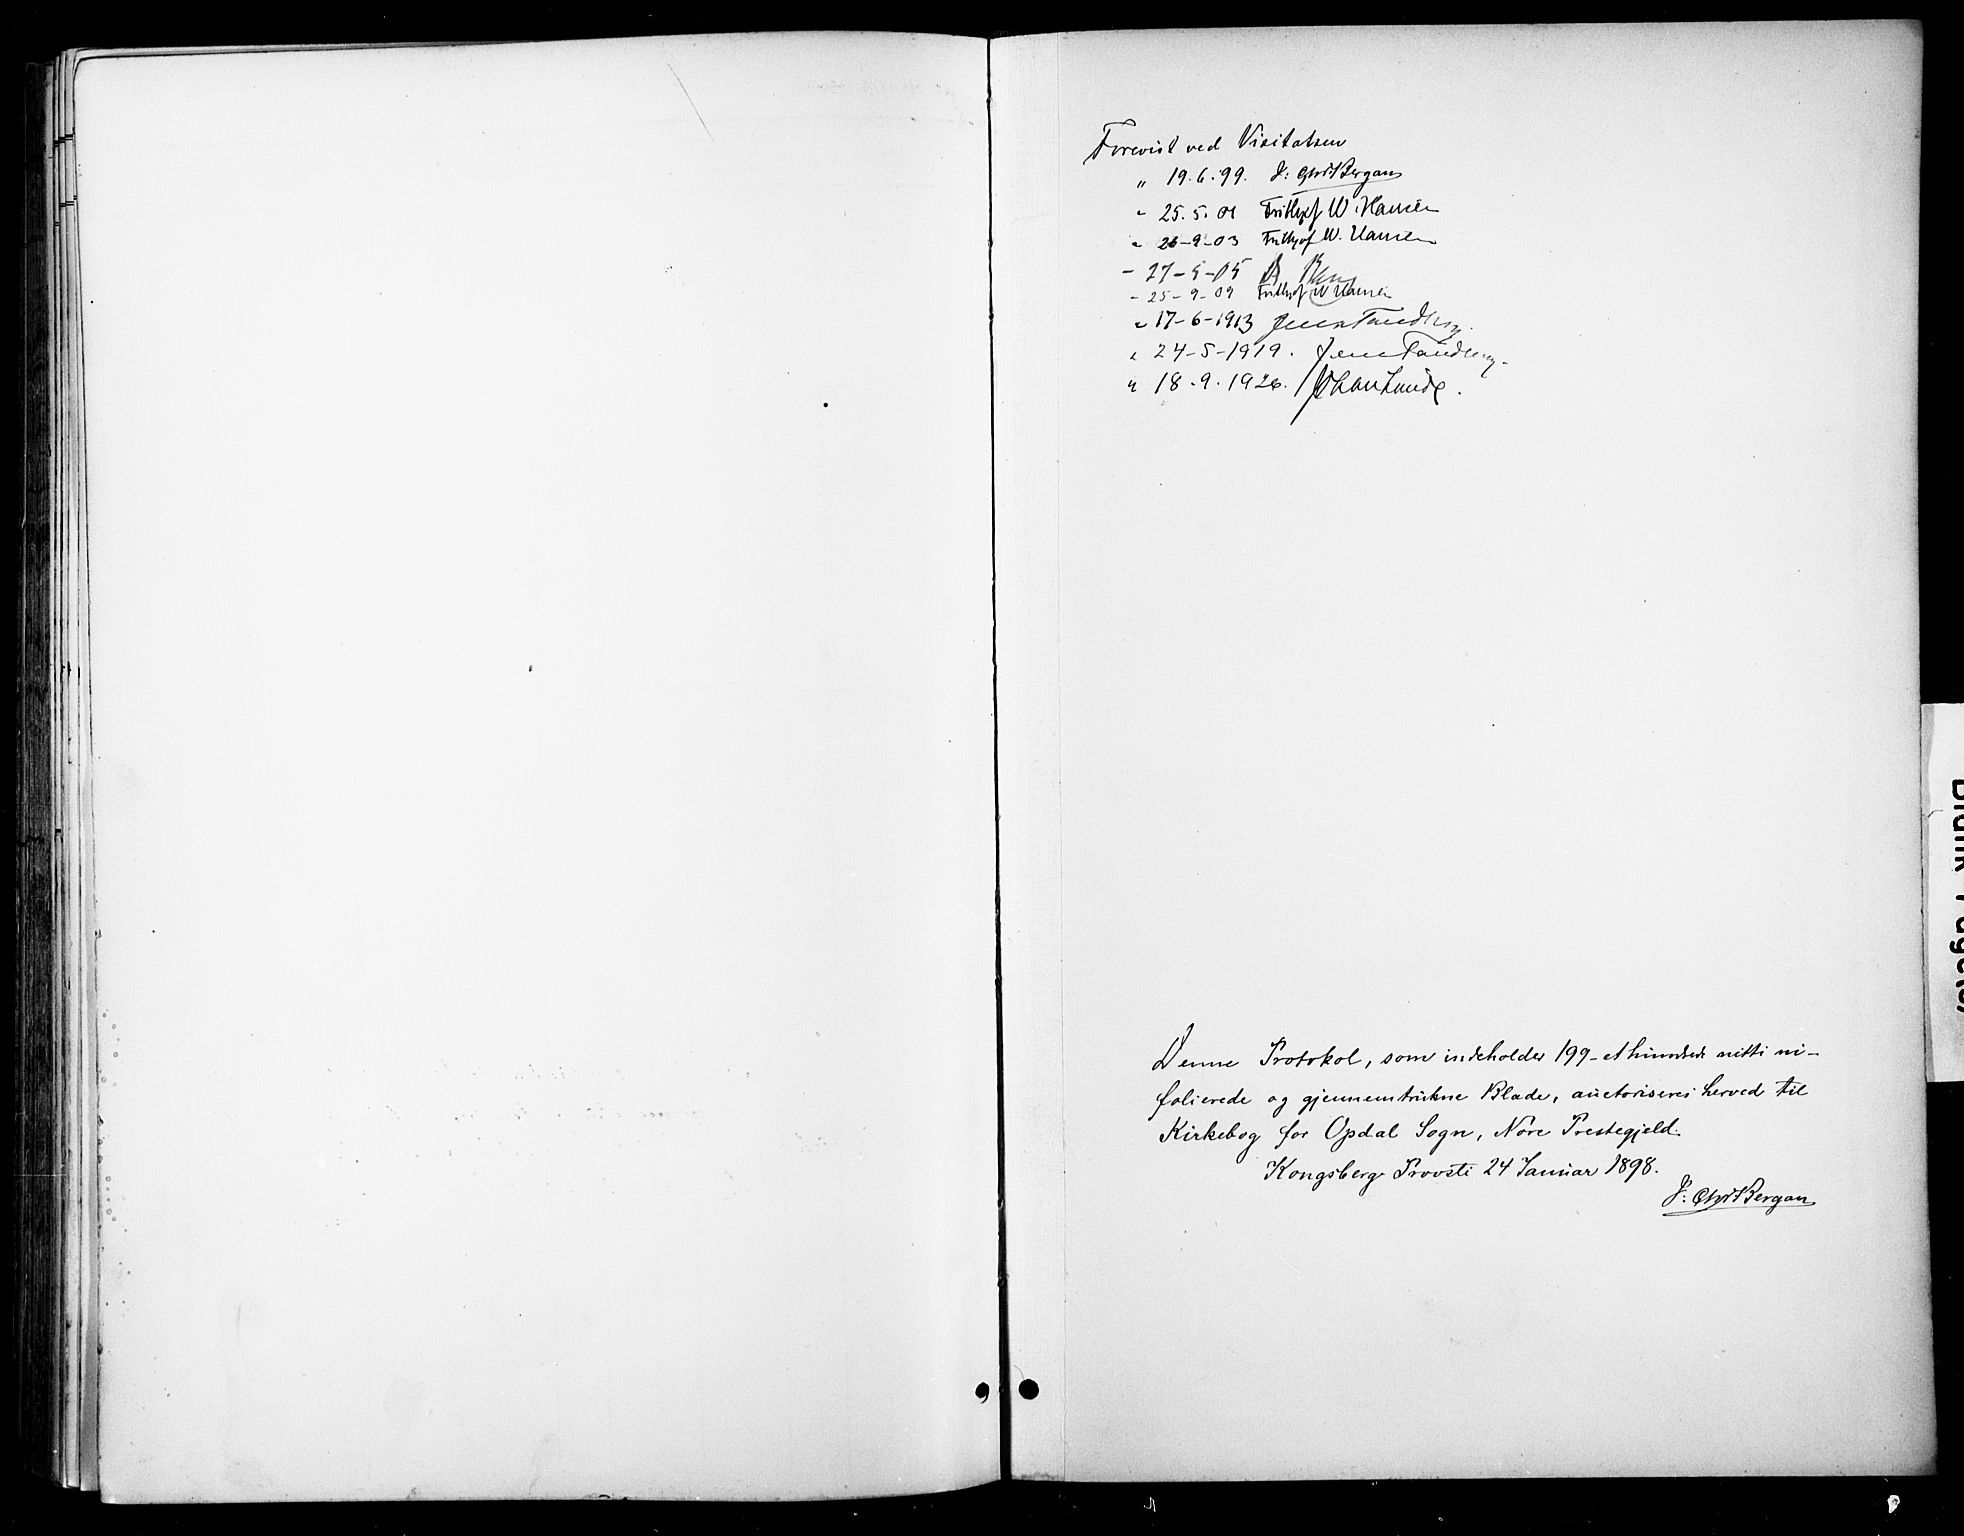 Forevist ved Visitatsen
" 19.6.99. J: Chr Bergan
" 25.5.01 Frithjof W. Hansen
" 26-9-03 Frithjof W. Hansen
- 27-5-05
- 25-9-09 Frithjof W Hansen
" 17-6-1913 Jens Tandberg.
" 24-5-1919. Jens Tandberg.
" 18.9.1926. Johan Lunde.
Denne Protokol, som indeholder 199 - et hundrede nitti ni -
folierede og gjennemtrukne Blade, auctoriseres herved til
Kirkebog for Opdal Sogn, Nore Prestegjeld.
Kongsberg Provsti 24 Januar 1898.
J: Chr Bergan